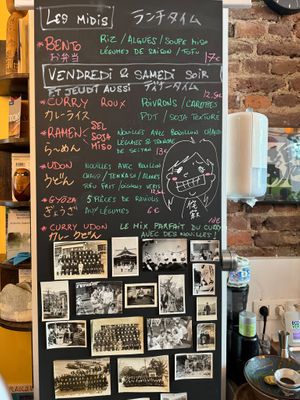 LES MIDIS ランチタイム
*BENTO お弁当
RIZ / ALGUES / SOUPE MISO
LÉGUMES DE SAISON / TOFU 17€
VENDREDI & SAMEDI SOIR
ET JEUDI AUSSI ディナータイム
*CURRY ROUX カレーライス 12,5€
POIVRONS / CAROTTES
PDT / SOJA TEXTURÉ
*RAMEN らーめん
SEL SOJA MISO
NOUILLES AVEC BOUILLON CHAUD
LÉGUMES & 
DE SEITAN 13€
*UDON うどん
NOUILLES AVEC BOUILLON
CHAUD / 
TOFU FRIT / OIGNONS VERTS
*GYOZA ぎょうざ
5 PIÈCES DE RAVIOLIS
AUX LÉGUMES 6€
*CURRY UDON カレーうどん
LE MIX PARFAIT DU CURRY
AVEC DES NOUILLES!